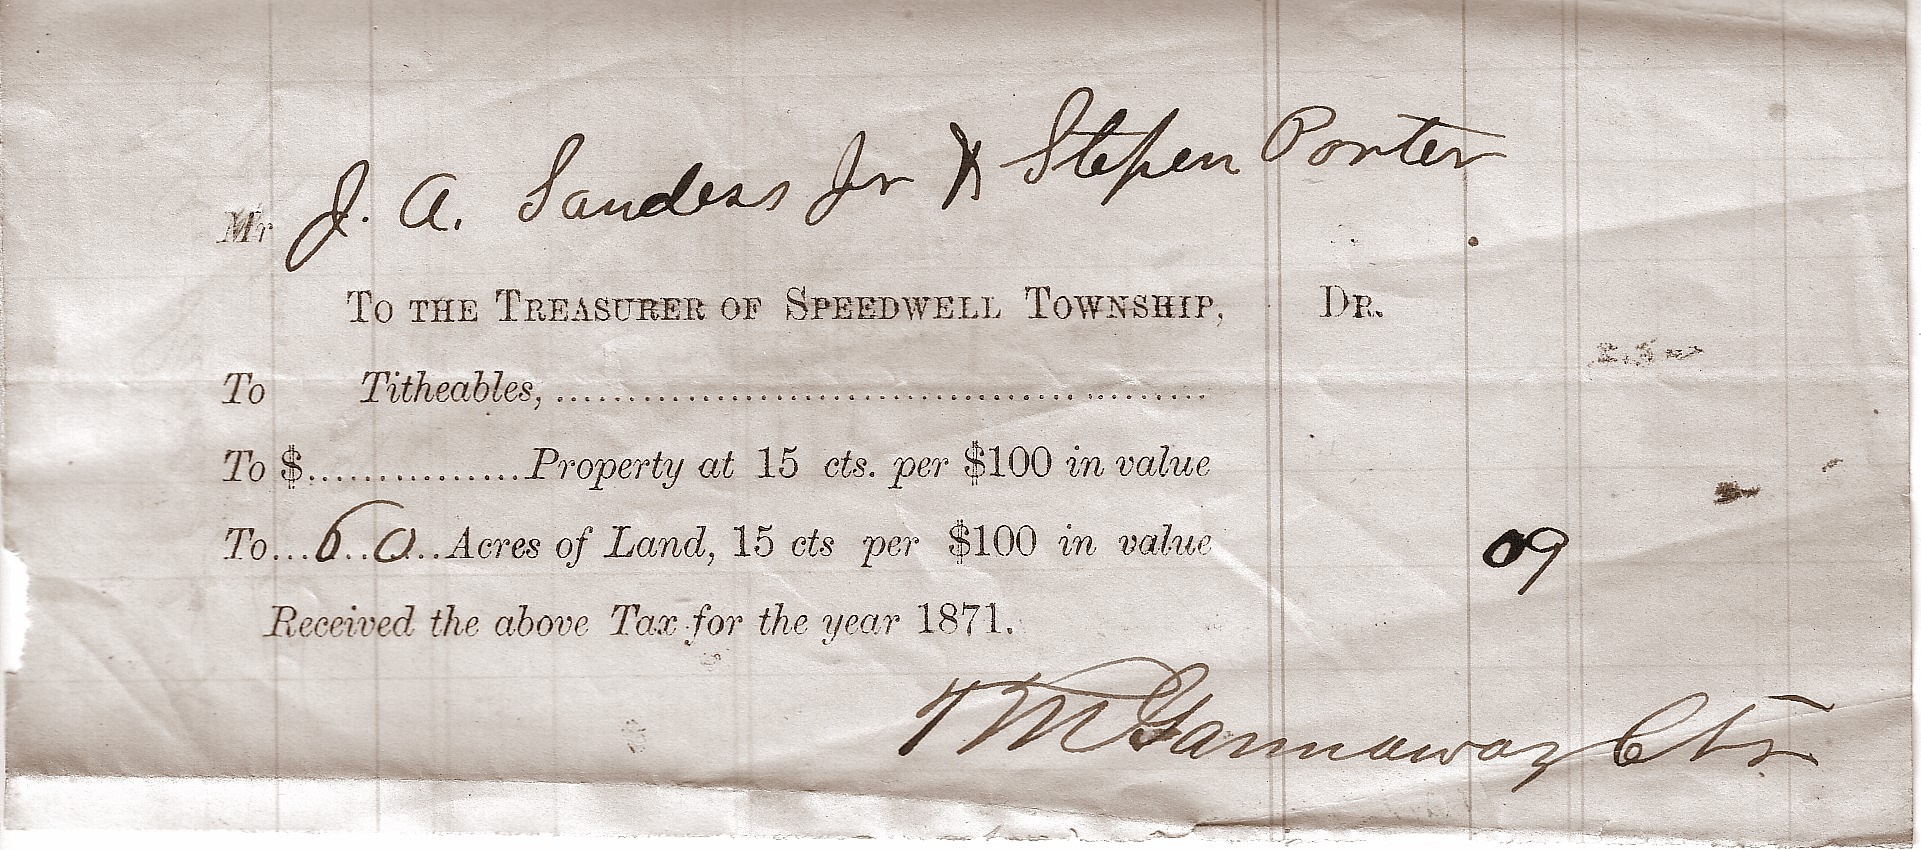 Mr J. A. Sanders Jr & Stephen Porter
TO THE TREASURER OF SPEEDWELL TOWNSHIP, DR.
To Titheables,
To $ Property at 15 cts. per $100 in value
To 60 Acres of Land, 15 cts per $100 in value 09
Received the above Tax for the year 1871.
T M Gannaway